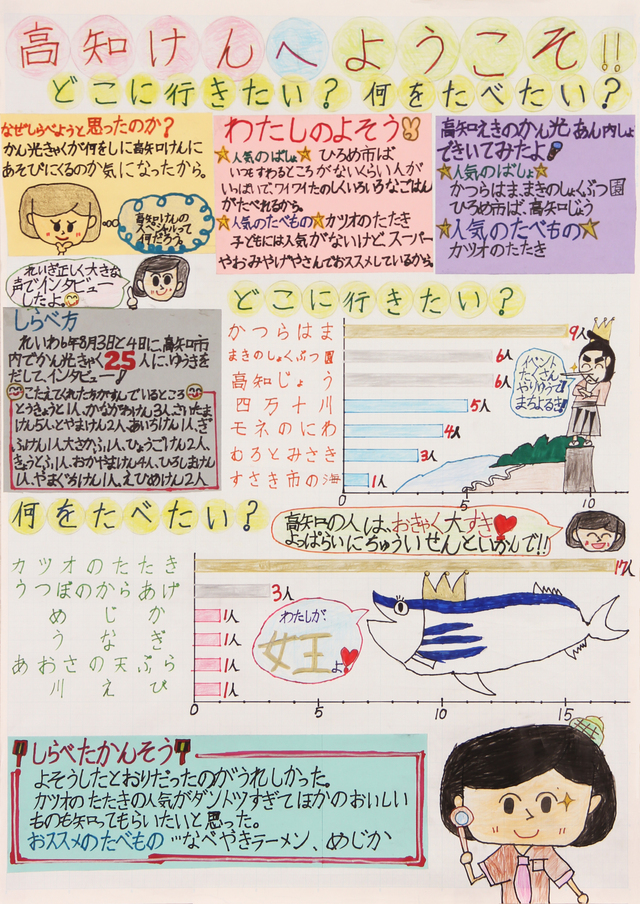 高知けんへようこそ!!
どこに行きたい？ 何をたべたい？
なぜしらべようと思ったのか？
かん光きゃくが何をしに高知けんに
あそびにくるのか気になったから。
高知けんの
スペシャルって
何だろう。
れいぎ正しく大きな
声でインタビュー
したよ。
わたしのよそう
人気のばしょ ひろめ市ば
いつもすわるところがないくらい人が
いっぱいで、ワイワイたのしくいろいろなごはん
がたべれるから。
人気のたべもの カツオのたたき
子どもには人気がないけど、スーパー
やおみやげやさんでおススメしているから。
高知えきのかん光あん内しょ
できいてみたよ
人気のばしょ
かつらはま、まきのしょくぶつ園
ひろめ市ば、高知じょう
人気のたべもの
カツオのたたき
しらべ方
れいわ6年8月3日と4日に、高知市
内でかん光きゃく25人に、ゆうきを
だして、インタビュー!
こたえてくれた方がすんでいるところ
とうきょう1人、かながわけん3人、さいたま
けん5人、とやまけん2人、あいちけん1人、ぎ
ふけん1人、大さかふ1人、ひょうごけん2人、
きょうとふ1人、おかやまけん4人、ひろしまけん
1人、やまぐちけん1人、えひめけん2人
どこに行きたい？
かつらはま 9人
まきのしょくぶつ園 6人
高知じょう 6人
四万十川 5人
モネのにわ 4人
むろとみさき 3人
すさき市の海 1人
0 5 10
イベント
たくさん
やりゆうき
まちよるき!!
何をたべたい？
高知の人は、おきゃく大すき
よっぱらいにちゅういせんといかんで!!
カツオのたたき 17人
うつぼのからあげ 3人
めじか 1人
うなぎ 1人
あおさの天ぷら 1人
川えび 1人
0 5 10 15
わたしが
女王
よ
しらべたかんそう
よそうしたとおりだったのがうれしかった。
カツオのたたきの人気がダントツすぎてほかのおいしい
ものも知ってもらいたいと思った。
おススメのたべもの …なべやきラーメン、めじか